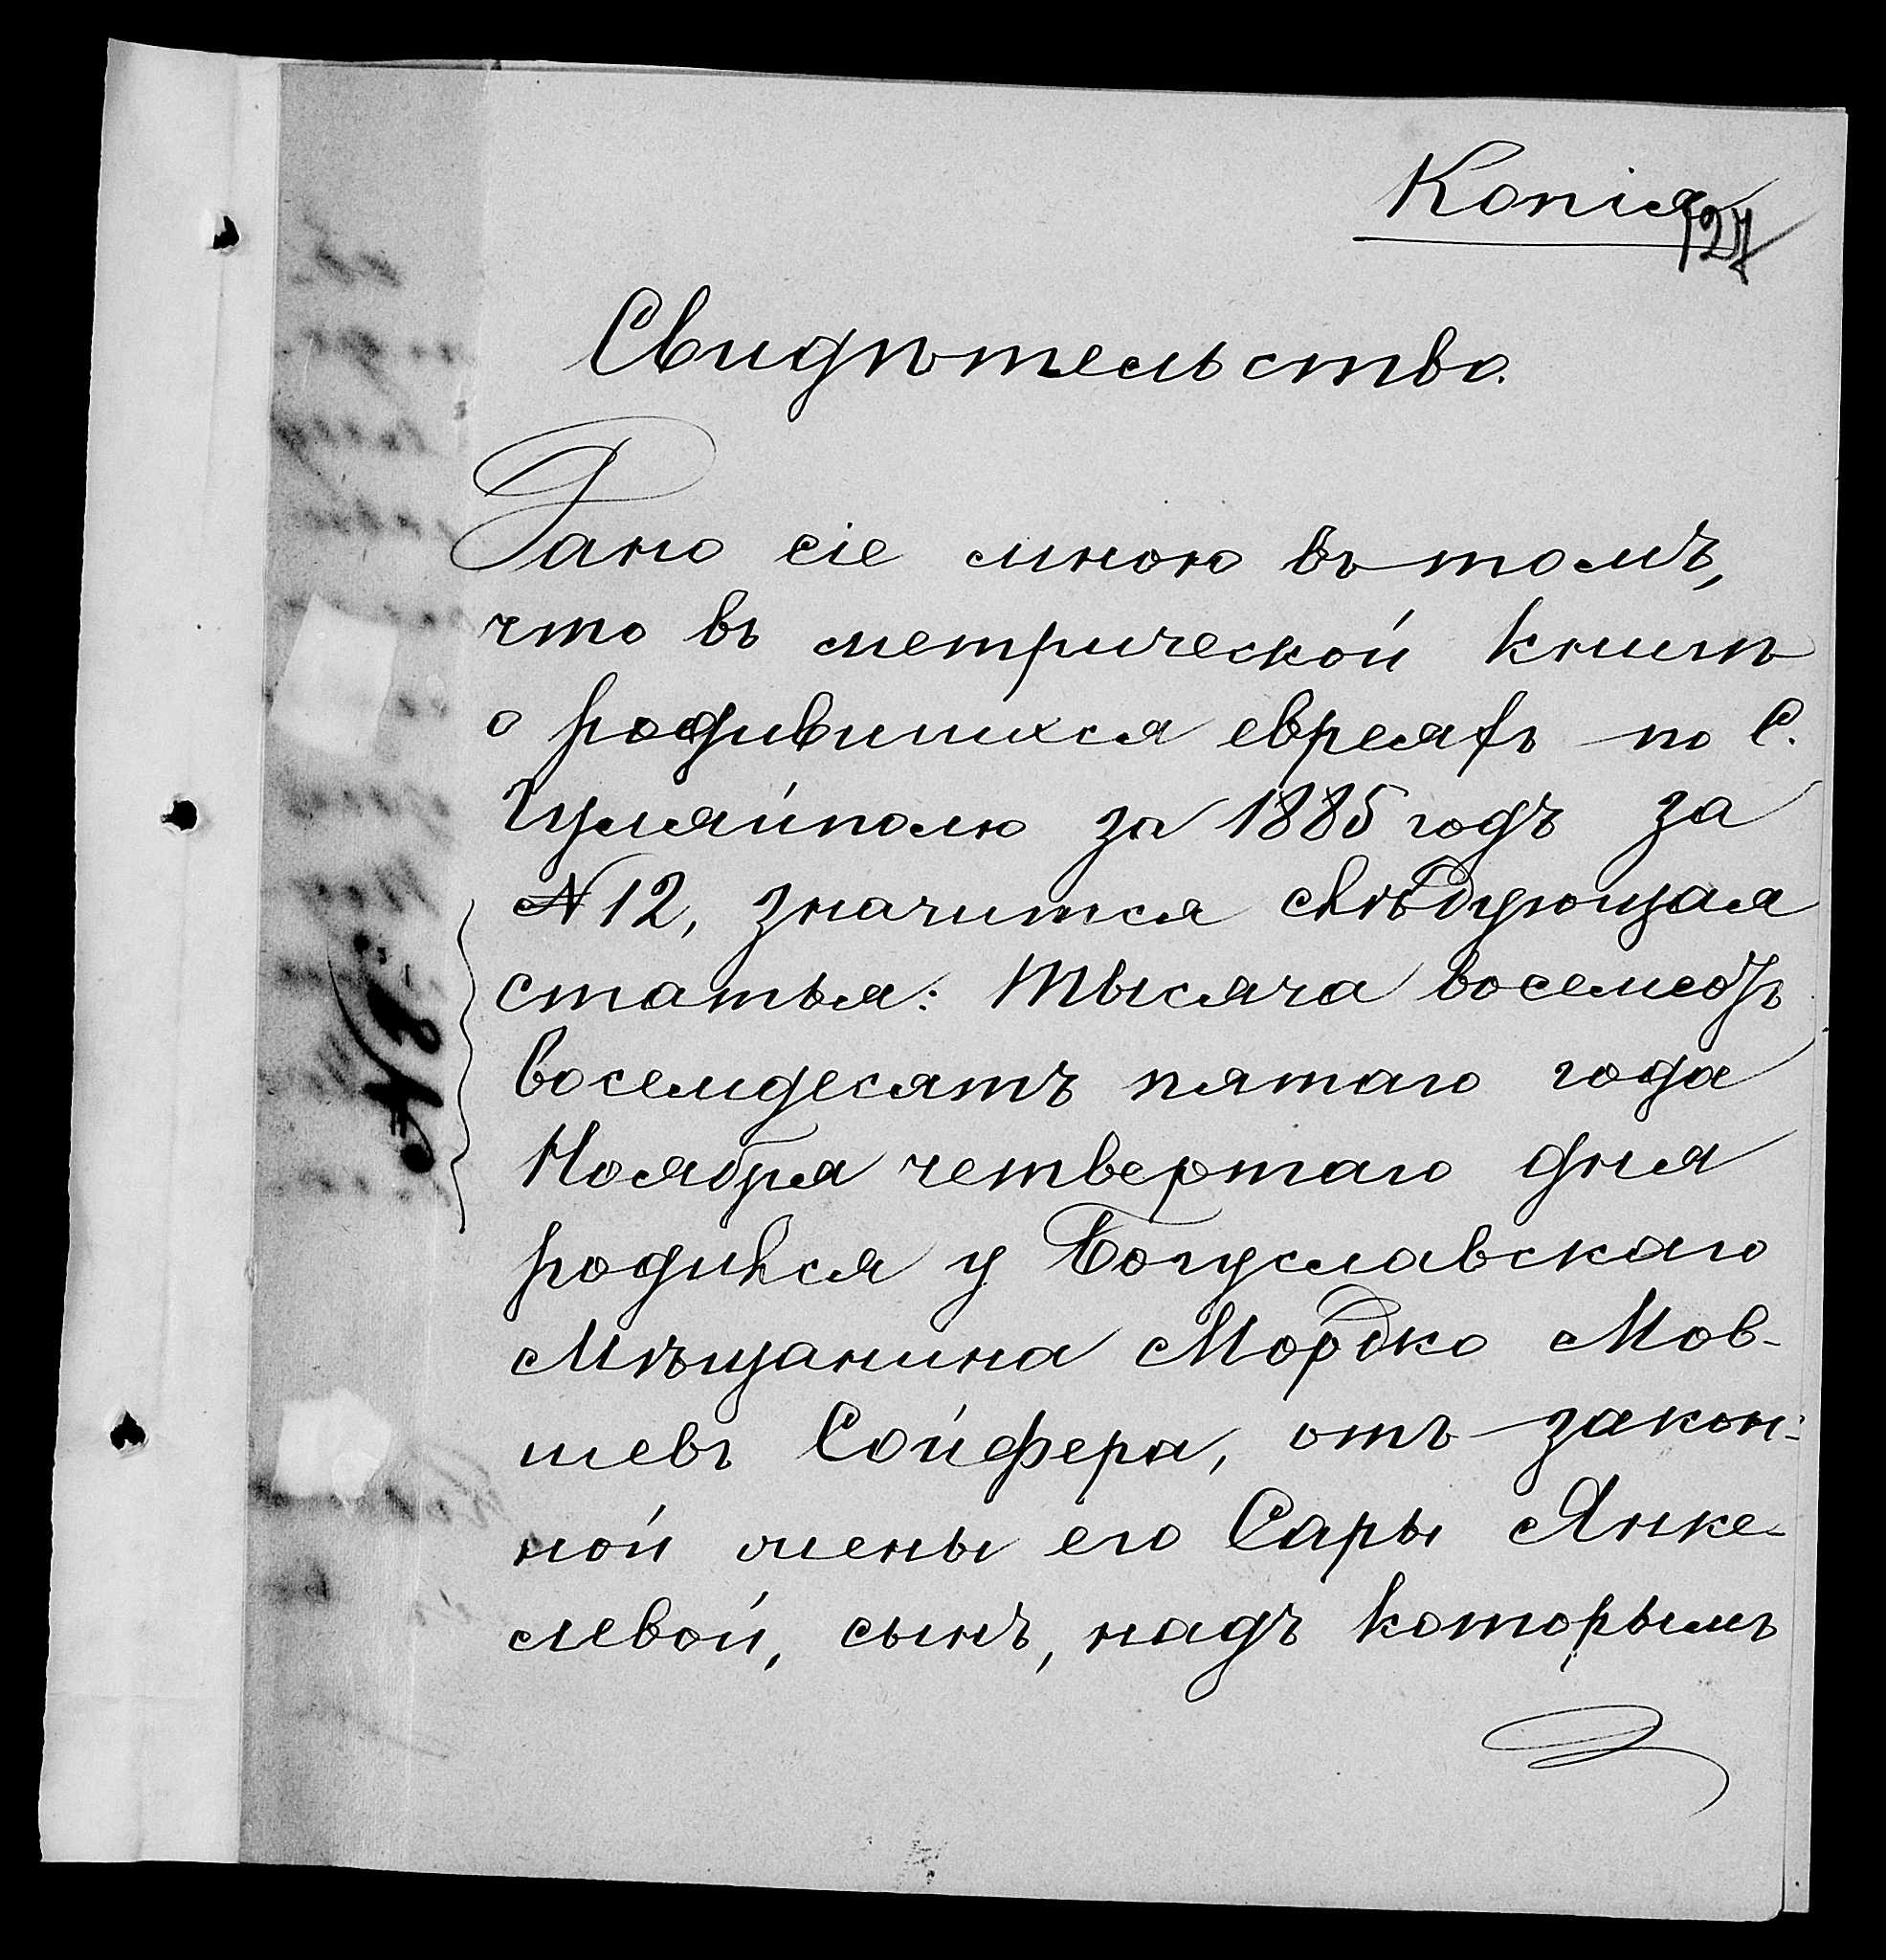 Копія
127
Свидѣтельство.
Дано сіе мною въ томъ,
что въ метрической книгѣ
о родившихся евреяхъ по С.
Гуляйполю за 1885 годъ за
№ 12, значится слѣдующая
статья: Тысяча восемсотъ
восемдесятъ пятаго года
Ноября четвертаго дня
родился у Богуславскаго
Мѣщанина Мордко Мов-
шевъ Сойфера, отъ закон-
ной жены его Сары Янке-
левой, сынъ, надъ которымъ